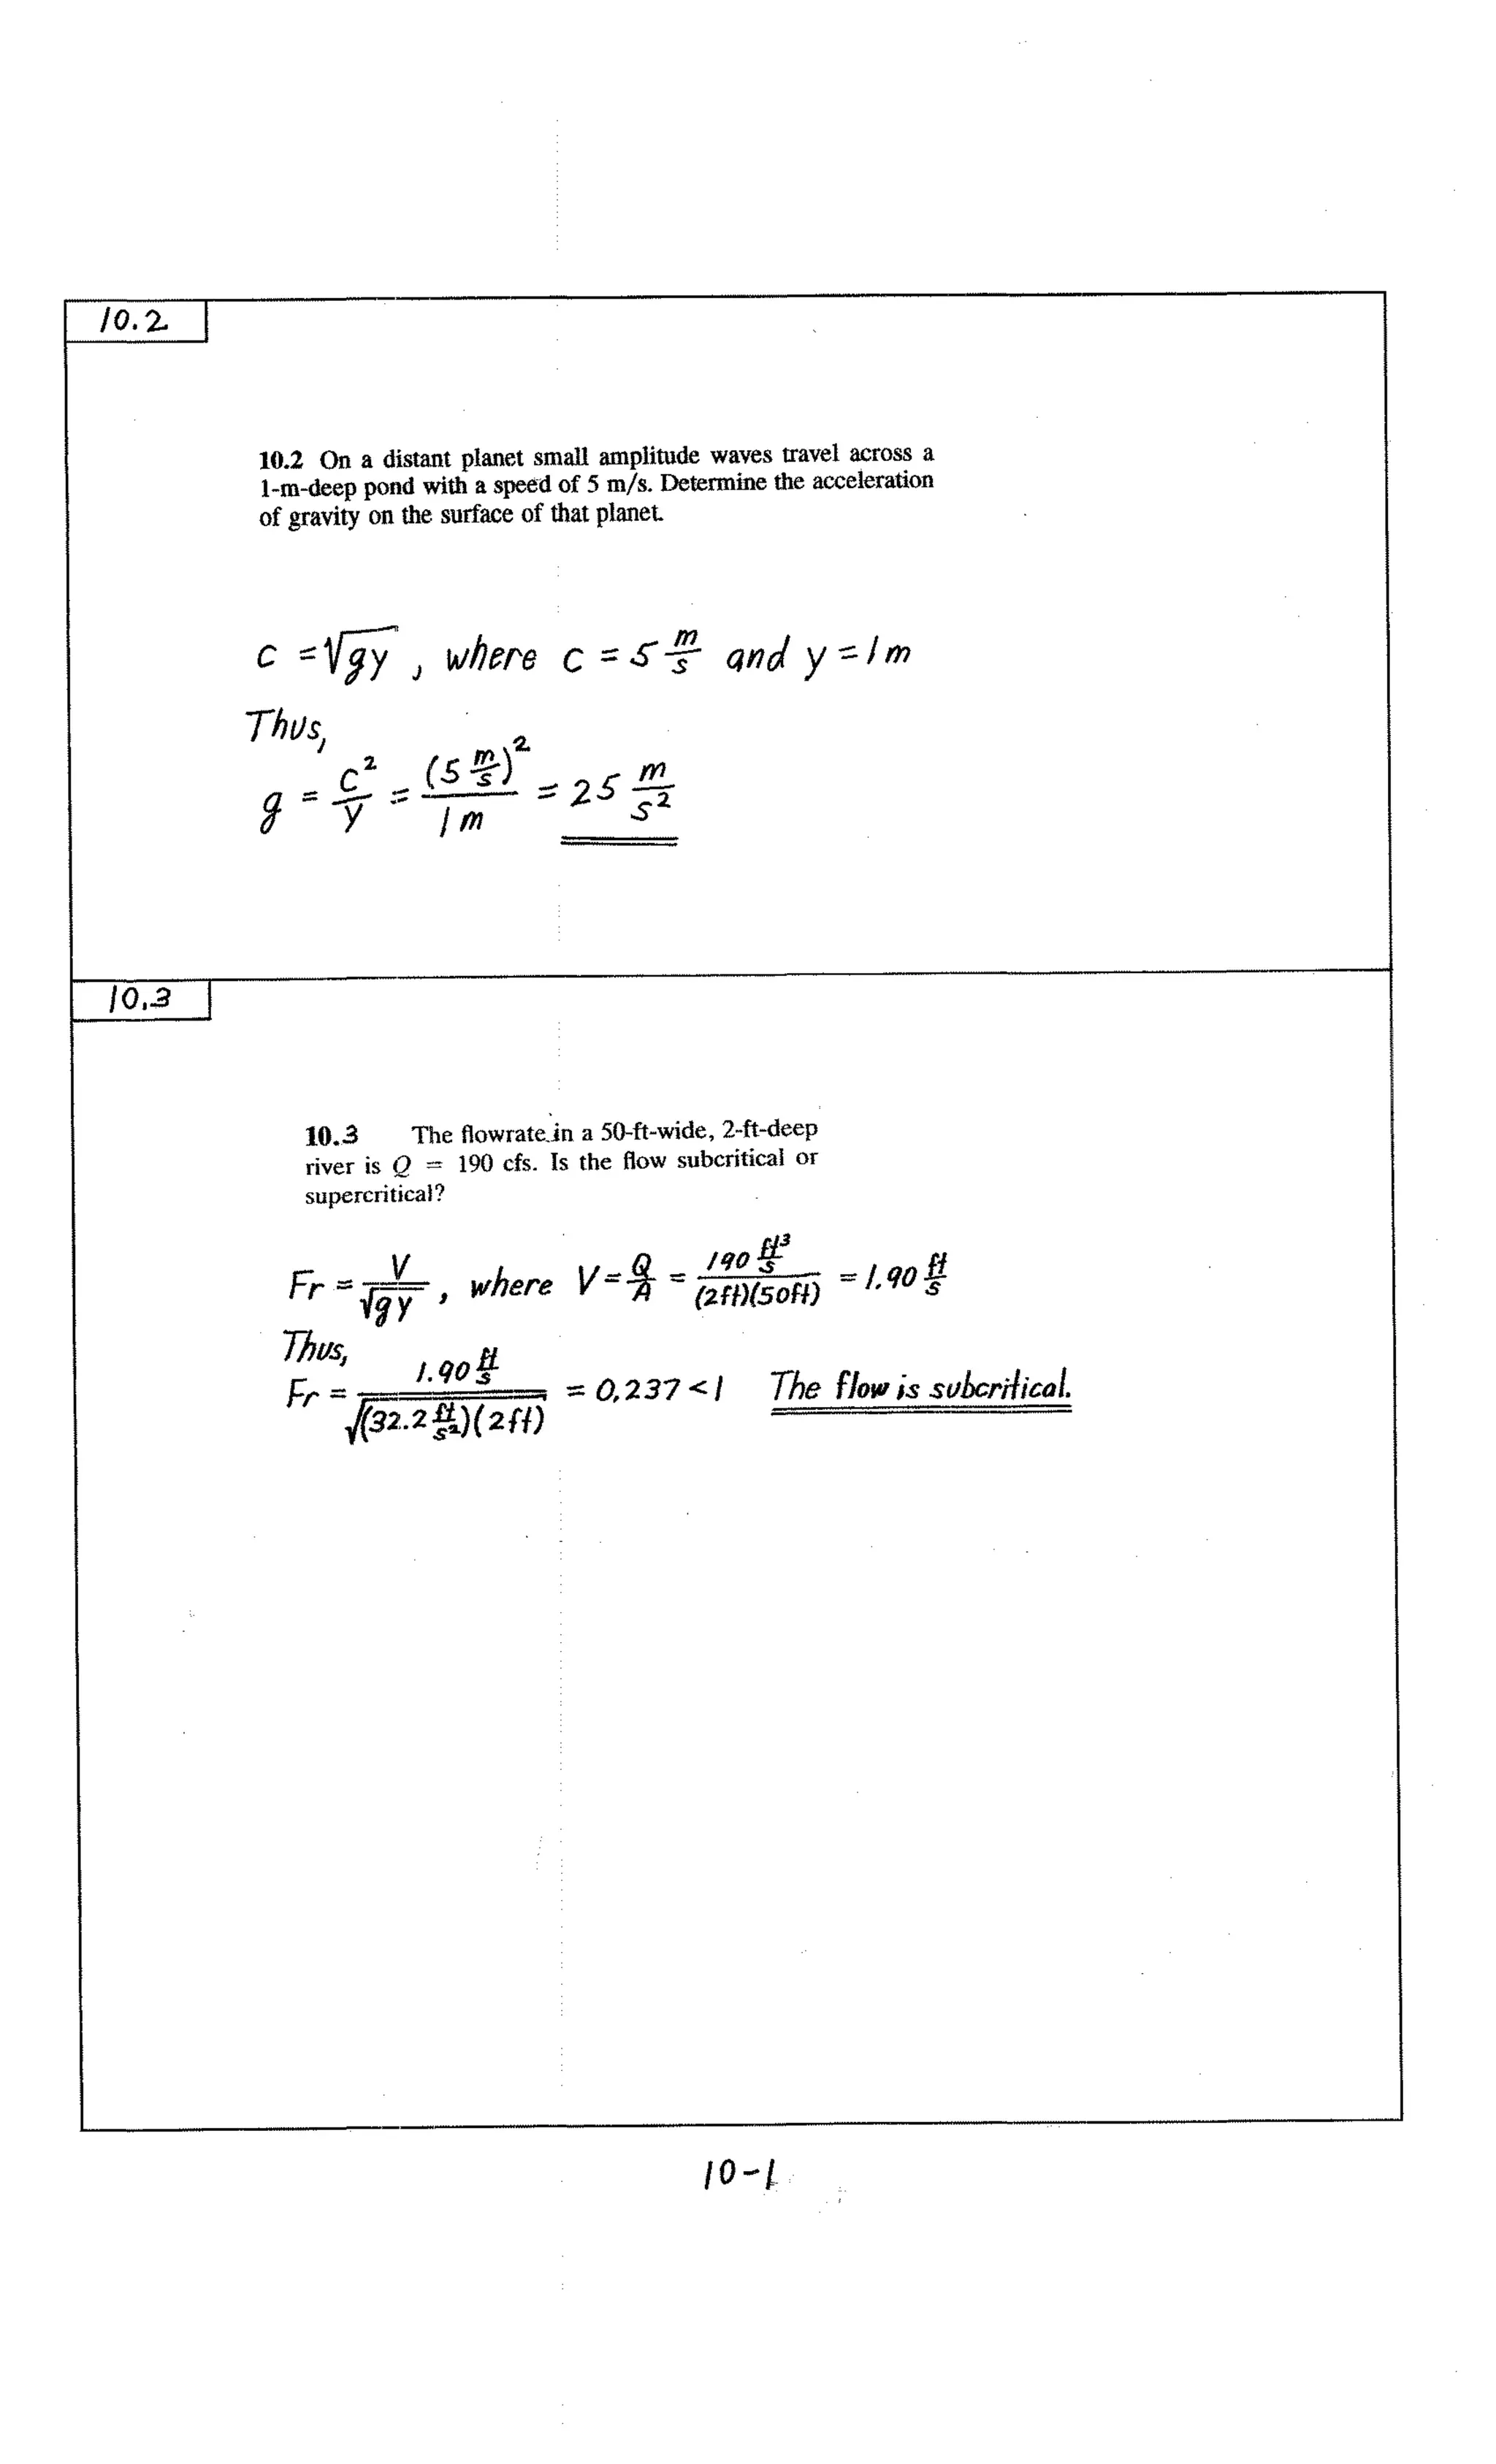 10.2
10.2 On a distant planet small amplitude waves travel across a
1-m-deep pond with a speed of 5 m/s. Determine the acceleration
of gravity on the surface of that planet.
c = √gy , where c = 5 m/s and y = 1 m
Thus,
g = c²/y = (5 m/s)²/1 m = 25 m/s²
10.3
10.3 The flowrate in a 50-ft-wide, 2-ft-deep
river is Q = 190 cfs. Is the flow subcritical or
supercritical?
Fr = V/√gy , where V = Q/A = 190 ft³/s/(2ft)(50ft) = 1.90 ft/s
Thus,
Fr = 1.90 ft/s/√(32.2 ft/s²)(2ft) = 0.237 < 1 The flow is subcritical.
10-1